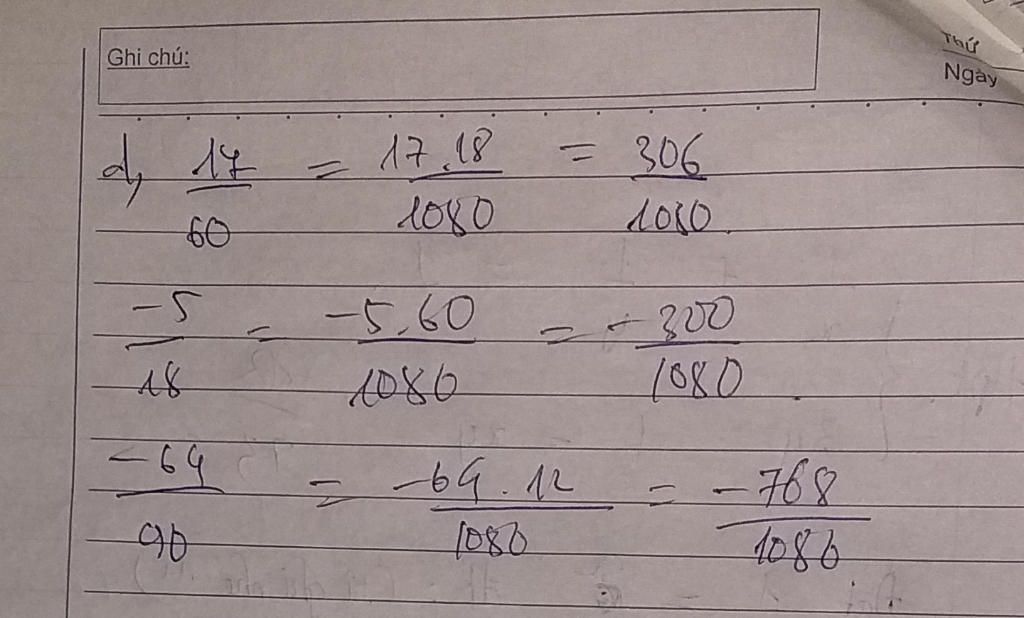 Ghi chú:
Thứ
Ngày
d, 17/60 = 17.18/1080 = 306/1080.
-5/18 = -5.60/1080 = -300/1080.
-64/90 = -64.12/1080 = -768/1080